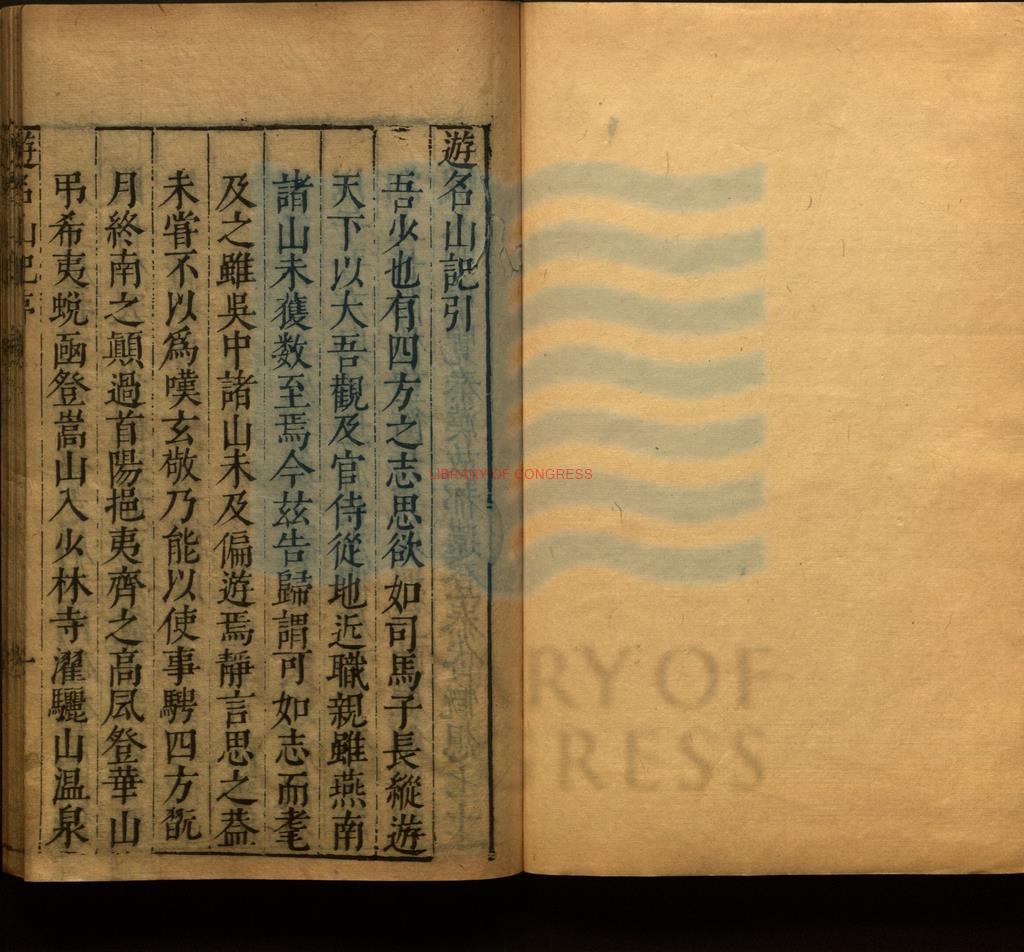 遊名山記引
吾少也有四方之志思欲如司馬子長縱遊
天下以大吾觀及官侍從地近職親雖燕南
諸山未獲数至焉今玆告歸謂可如志而耄
及之雖吳中諸山未及偏遊焉靜言思之葢
未甞不以爲嘆玄敬乃能以使事騁四方翫
月終南之顛過首陽挹夷齊之高風登華山
弔希夷蛻凾登嵩山入少林寺濯驪山温泉
遊名山記
一
LIBRARY OF CONGRESS
RY OF
RESS